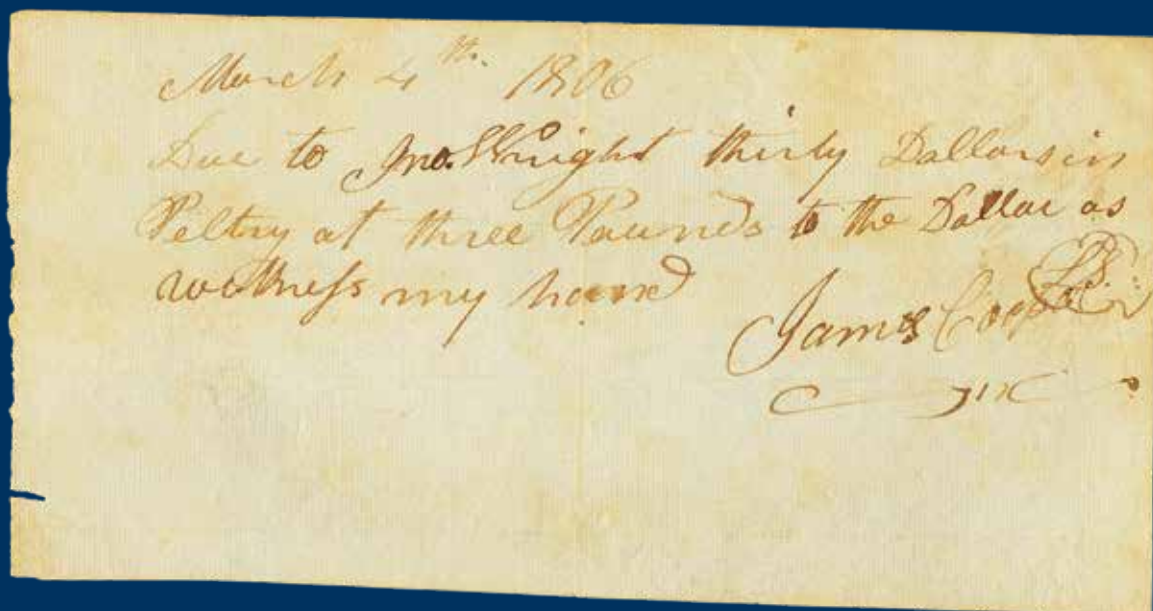 March 4th. 1806
Due to Jno. Knight thirty Dollars in
Peltry at three Pounds to the Dollar as
wittness my hand
James Cooper